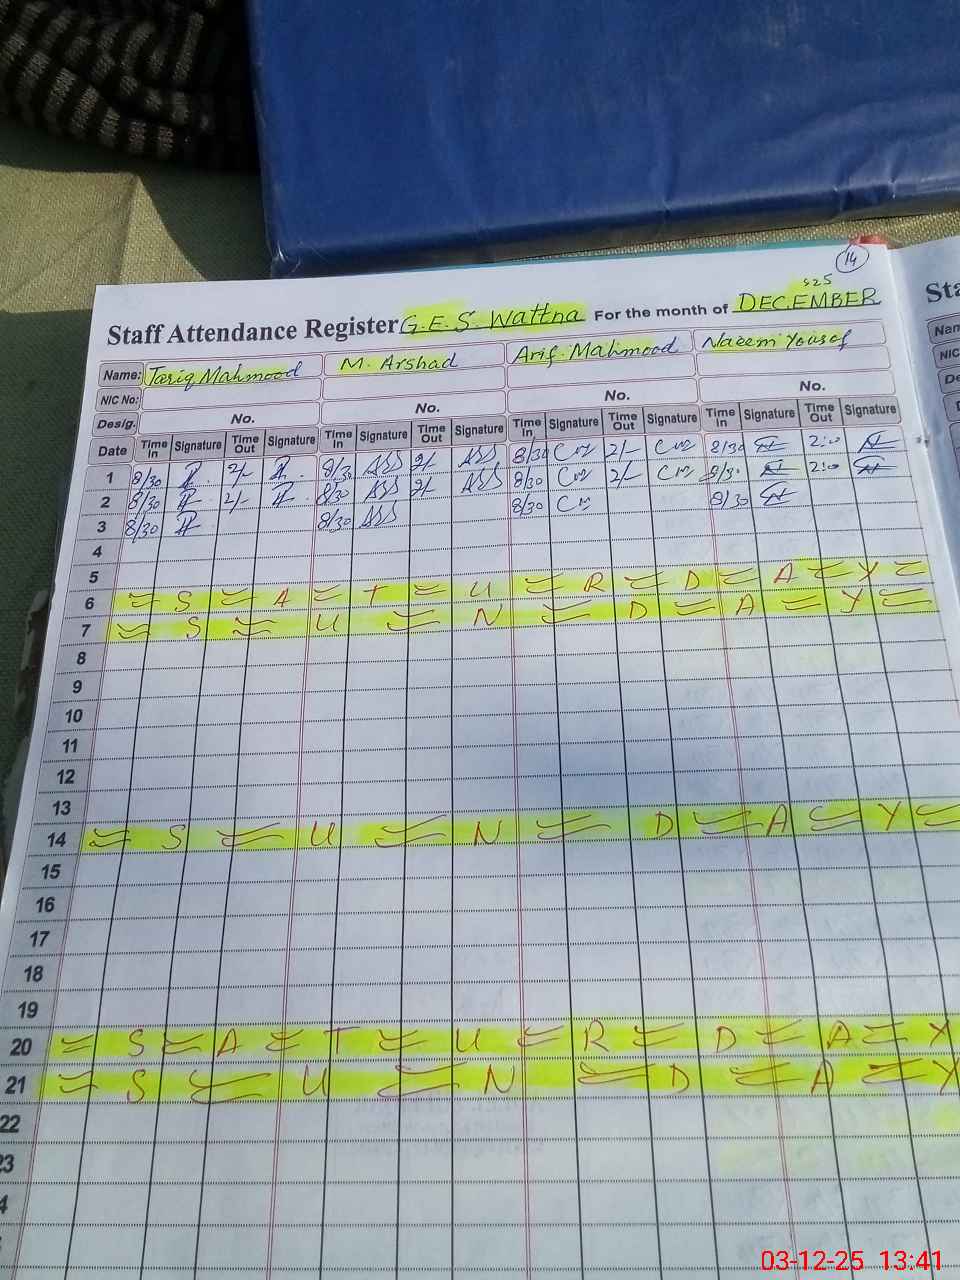 14
S25
Staff Attendance Register G.E.S. Wattna For the month of DECEMBER
Sta
Name: Tariq Mahmood M. Arshad Arif Mahmood Naeem Yousef
Nam
NIC No:
NIC
Desig. No. No. No. No.
De
Date Time In Signature Time Out Signature Time In Signature Time Out Signature Time In Signature Time Out Signature Time In Signature Time Out Signature
1 8/30 2/- 8/30 2/- 8/30 2/- 8/30 2:00
2 8/30 2/- 8/30 2/- 8/30 2/- 8/30 2:00
3 8/30 8/30 8/30 8/30
4
5
6 = S = A = T = U = R = D = A = Y =
7 = S = U = N = D = A = Y =
8
9
10
11
12
13
14 = S = U = N = D = A = Y =
15
16
17
18
19
20 = S = A = T = U = R = D = A = Y
21 = S = U = N = D = A = Y
22
23
4
03-12-25 13:41